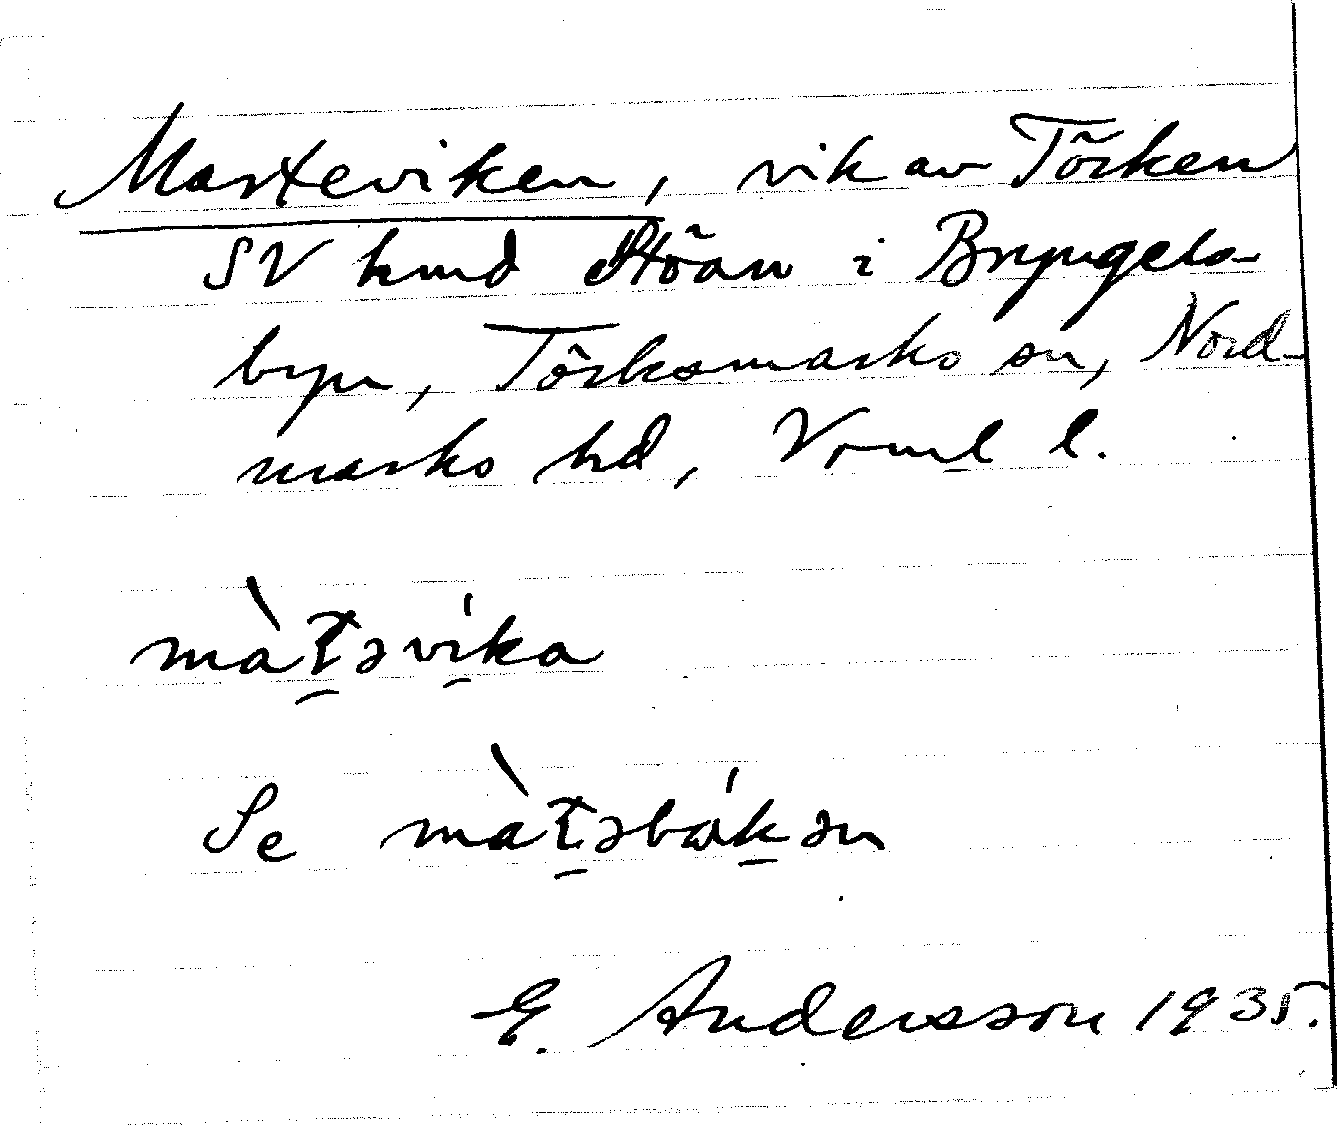 Marteviken, vik av Törken
SV hmd Stöan i Bryngels-
byn, Törksmarks sn, Nord-
marks hd, Vrml l.
màt̠əví̠ka
Se màt̠əbák̠ən
E. Andersson 1935.